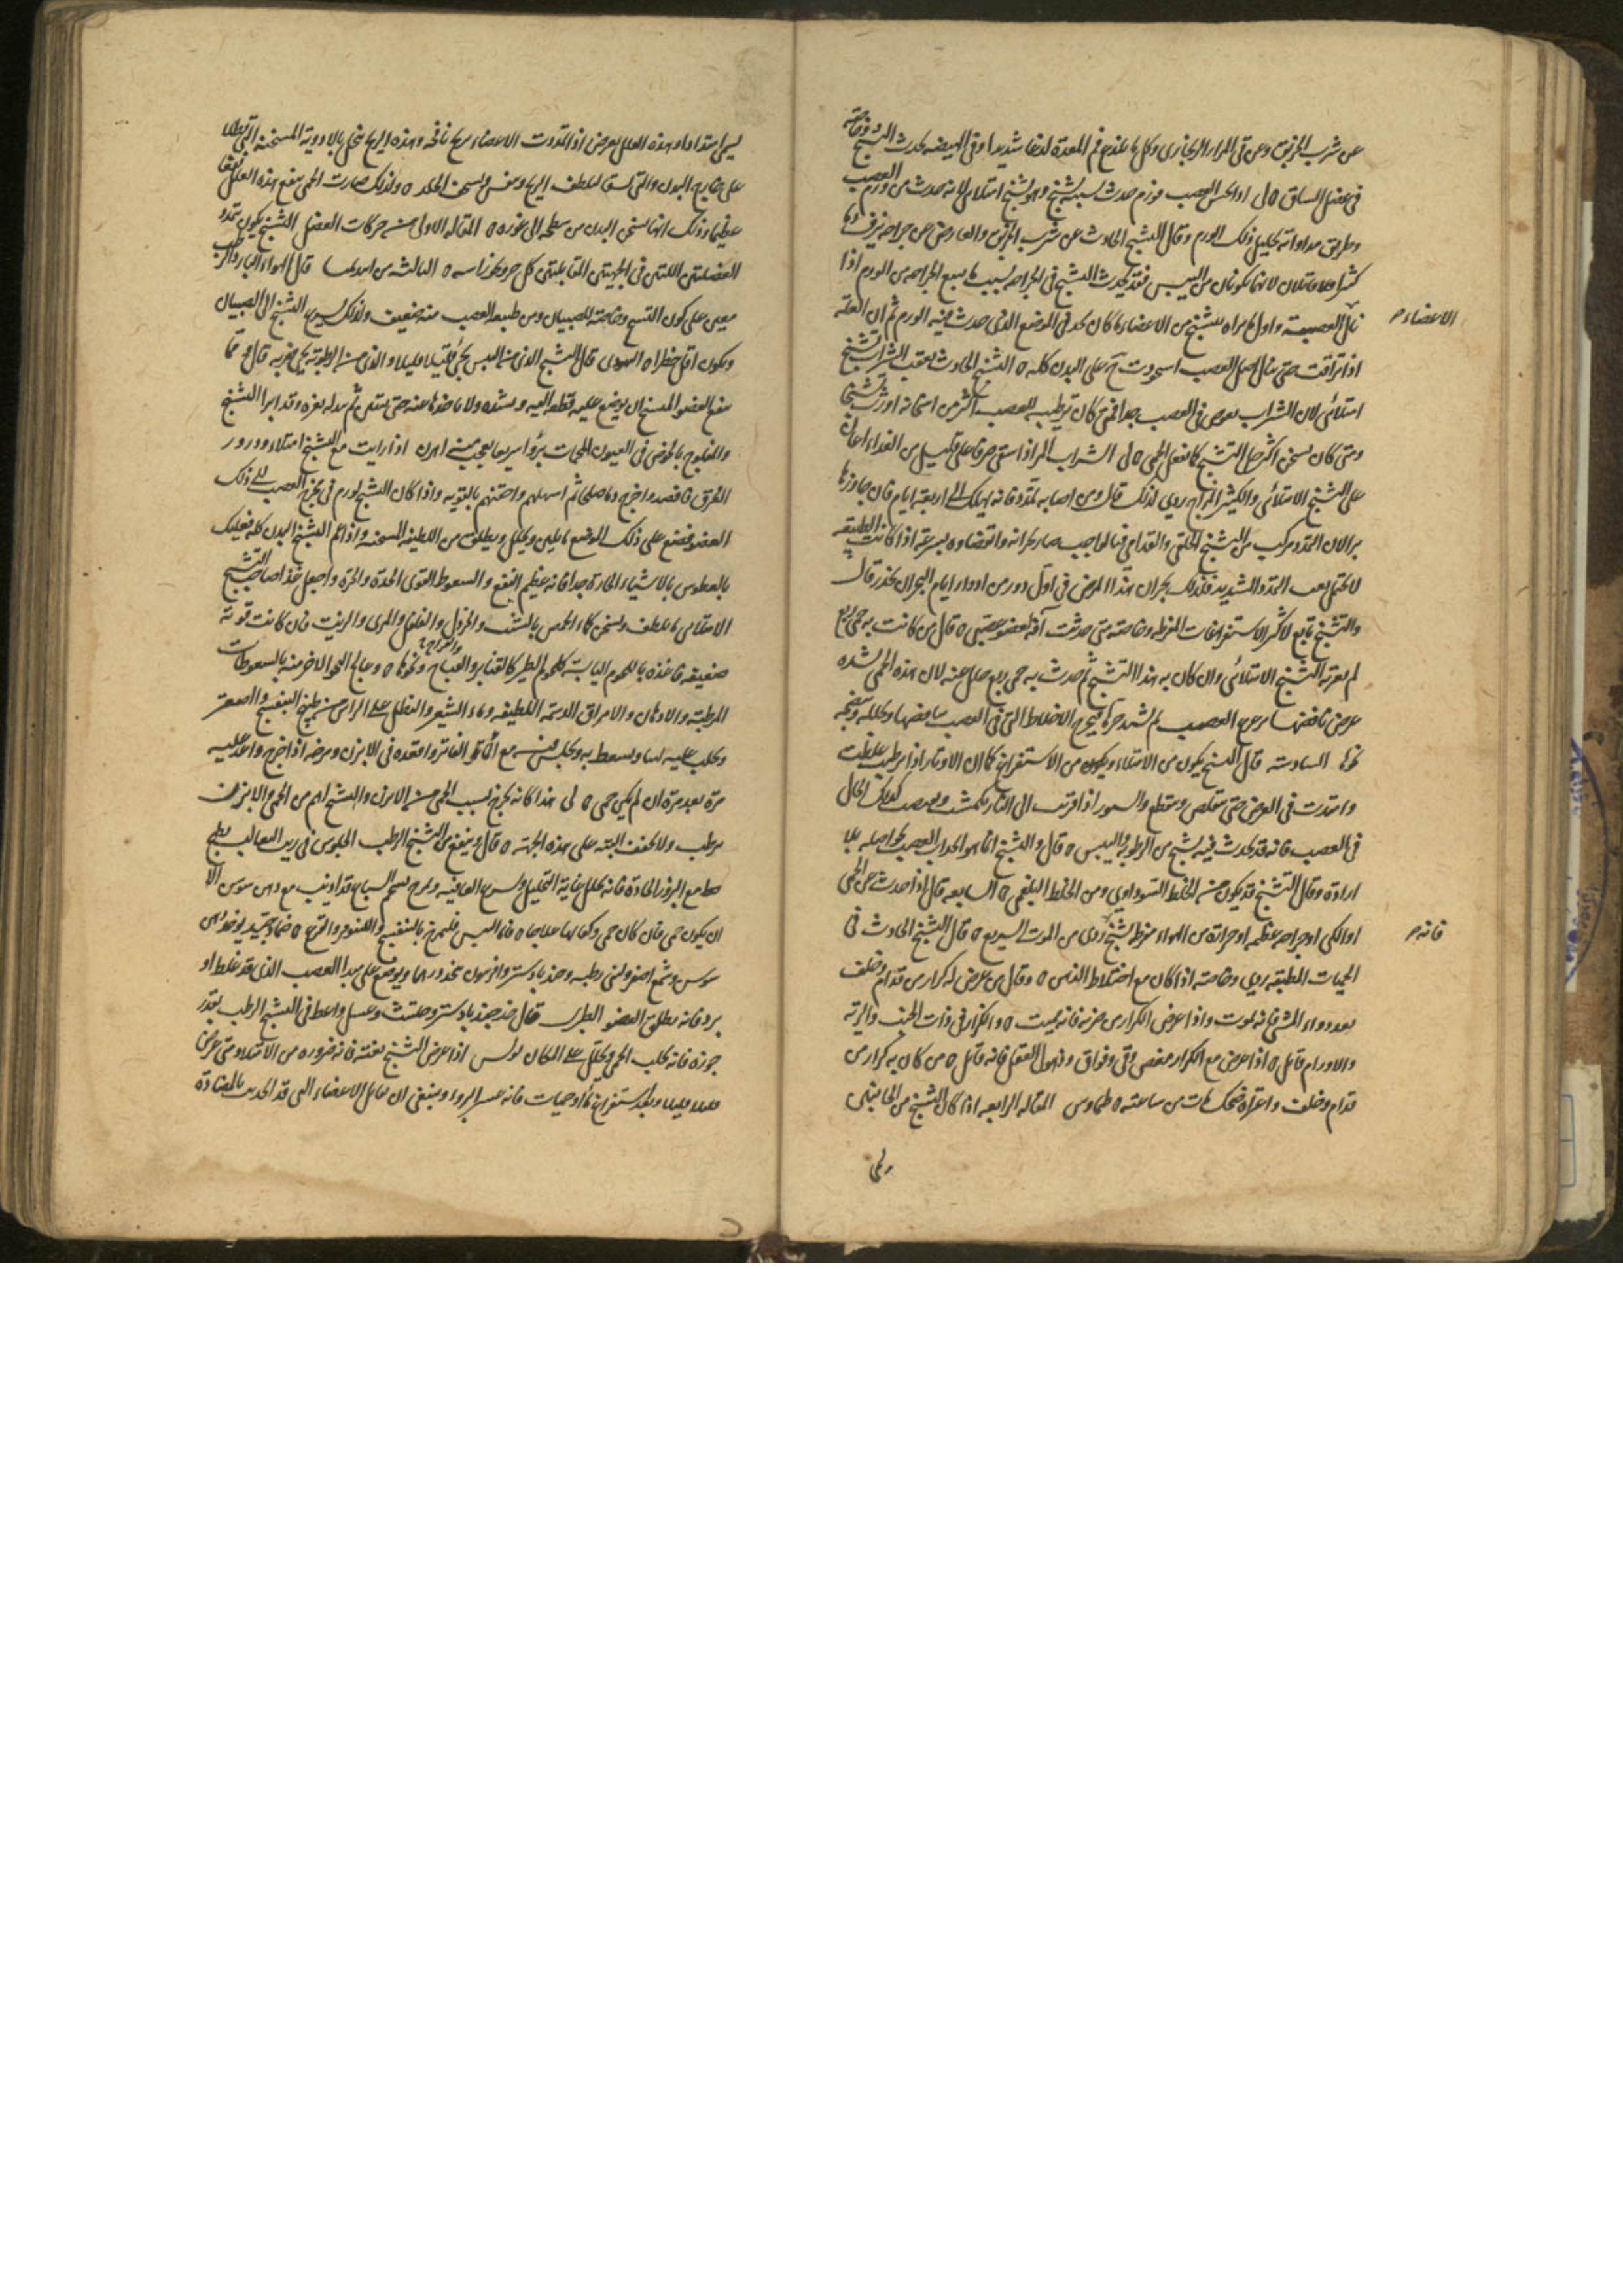 عن شرب الخربق وعن قى المرار الزنجارى وكل ما يلذع فم المعدة لذعا شديدا وفى الهيضه يحدث التشنج وخاصة
فى عضل الساق ٥ لى اذا احس العصب فورم حدث بسببه تشنج وهو تشنج امتلائى لانه حدث من ورم العصب
وطريق مداواته تحليل ذلك الورم وقال التشنج الحادث عن شرب الخربق والعارض عن جراحه ينزف دما
كثيرا وهما قتالان لانهما يكونان من اليبس فقد يحدث التشنج فى الجراحه بسبب ما يتبع الجراحه من الورم اذا
نال العصبية واول ما يراه يتشنج من الاعضاء ما كان بحذى الموضع الذى حدث فيه الورم ثم ان العلة
الاعضاء م
اذا تراقت حتى تنال اصل العصب استحوذت ح على البدن كله ٥ التشنج الحادث بعقب الشراب تشنج
امتلائى لان الشراب يغوص فى العصب جدا فمتى كان ترطيبه للعصب اكثر من اسخانه اورث تشنجا
ومتى كان يسخن اكثر حلل التشنج كما تفعل الحمى ٥ لى الشراب المر اذا سقى صرفا على قليل من الغذاء اعان
على التشنج الامتلائى والكثير المزاج ردى لذلك قال ومن اصابه تمدد فانه يهلك الى اربعة ايام فان جاوزها
برا لان التمدد مركب من التشنج الخلفى والقدامى فبالواجب صار بحرانه وانقضاوه بسرعة اذا كانت الطبيعه
لا تحتمل تعب التمدد الشديد فلذلك بحران هذا المرض فى اول دور من ادوار ايام البحران بحذر قال
والتشنج تابع لاكثر الاستفراغات المفرطه وخاصته متى حدثت آفة لعضو عصبى ٥ قال من كانت به حمى ربع
لم يعتريه التشنج الامتلائى وان كان به هذا التشنج ثم حدث به حمى ربع حلل عنه لان هذه الحمى لشدة
عرض نافضها يزعزع العصب ثم لشدة حرها يخرج الاخلاط التى فى العصب بنافضها وتحلله وتنضجه
نحوها السادسه قال التشنج يكون من الامتلاء ويكون من الاستفراغ كما ان الاوتار اذا رطبت غلظت
وامتدت فى العرض حتى تتقلص وتنقطع والسيور اذا اقربت الى النار تكمشت وتقبضت كذلك الحال
فى العصب فانه قد يحدث فيه تشنج من الرطوبة واليبس ٥ قال والتشنج انما هو انجذاب العصب نحو اصله بلا
ارادة وقال التشنج قد يكون من الخلط السوداوى ومن الخلط البلغمى ٥ السابعه قال اذا حدث عن الحمى
او الكى او جراحه عظيمه او حرارة من الهواء مفرطه تشنج ردى من الموت السريع ٥ قال التشنج الحادث فى
فانه م
الحميات المطبقه ردى وخاصته اذا كان مع اختلاط الذهن ٥ وقال من عرض له كزاز من قدام وخلف
بعد دواء المشى فانه يموت واذا عرض الكزاز من ضربه فانه يميت ٥ والكزاز فى ذات الجنب والرئة
والاورام قاتل ٥ اذا عرض مع الكزاز مغص وقى وفواق وذهول العقل فانه قاتل ٥ من كان به كزاز من
قدام وخلف واعتراه ضحك مات من ساعته ٥ طيماوس المقاله الرابعه اذا كان التشنج من الجانبين
يسمى امتدادا وهذه العلل تعرض اذا تمددت الاعضاء بريح نافخه وهذه الريح تنحل بالادوية المسخنة التى تطلا
على خارج البدن والتى تسقا لتلطف الريح وتفش وتسخف الجلد ٥ ولذلك صارت الحمى تنفع هذه العلل نفعا
عظيما وذلك انها تسخن البدن من سطحه الى غوره ٥ المقاله الاولى من حركات العضل التشنج يكون تمدد
العضلتين اللتين فى الجهتين المتقابلتين كل جرو نحو راسه ٥ الثالثه من ابيديميا قال الهواء البارد الرطب
معين على كون التشنج وخاصته للصبيان ومن طبيعه العصب منه ضعيف ولذلك يسرع التشنج الى الصبيان
ويكون اقل خطرا ٥ اليهودى قال التشنج الذى من اليبس يجئ قليلا قليلا والذى من الرطوبة يجئ ضربه قال ومما
ينفع العضو المتشنج ان يوضع عليه قطعه اليه ويشده ولا ياخذها عنه حتى ينتن ثم يبدله بغيره وقد ابرا التشنج
والمفلوج بالخوض فى العيون الحمات برؤا سريعا عجيبا ٥ اهرن اذا رايت مع التشنج امتلاء ودرور
العرق فافصده واخرج دما صالحا ثم اسهلهم واحقنهم بالقوية واذا كان التشنج لورم فى مخرج العصب الى ذلك
العضو فضع على ذلك الموضع ما يلين ويحلل ويطلق من اللطيفه المسخنه واذا عم التشنج البدن كله فعليك
بالعطوس بالاشياء الحارة جدا فانه عظيم النفع والسعوط القوى الحدة والحرة واجعل غذا صاحب التشنج
الامتلائى ما يلطف ويسخن كماء الحمص بالشبت والخردل والفلفل والمرى والزيت فان كانت قوته
ضعيفه فاغذه باللحوم اليابسة كلحوم الطير كالقنابر والقباج والدراج ونحوها ٥ وعالج النحو الاخر منه بالسعوطات
المرطبة والادهان والامراق الدسمة اللطيفه وماء الشعير والنطل على الراس من طبيخ البنفسج والصعتر
ويحلب عليه لبنا ويسعط به ويجلس فى مع الماء الفاتر واقعده فى الابزن ومرخه اذا خرج واعد عليه
مرة بعد مرة ان لم يكن حمى ٥ لى هذا كانه تحرج بسبب الحمى من الابزن والتشنج اهم من الحمى والابزن
يرطب ولا يخفف البتة على هذه الجهته ٥ قال وينفع من التشنج الرطب الجلوس فى زيت الثعالب يطبخ
مع البزور الحادة فانه يحلل غاية التحليل ويسرع العافيه ويمرخ بشحم السباع قد اذيب مع دهن سوسن الا
ان يكون حمى فان كان حمى ٥ فاما اليبس فليمرخ بالبنفسج واللينوفر والقرع ٥ ضماد جيد يوخذ دهن
سوسن وشمع اصفر ولبنى رطبه وجندبادستر وافربيون ويوضع على مبدا العصب الذى قد غلظ او
برد فانه يطلق العضو الطبرى قال خذ جندبادستر وحلتيت وعسل واعط فى التشنج الرطب بقدر
جوزة فانه يجلب الحمى ويحلل على المكان بولس اذا عرض التشنج بغتة فانه ضرورة من الامتلاء ومتى عرض
قليلا قليلا وبعد استفراغ ما او حميات فانه عسر البرء وينبغى ان تقابل الاعضاء التى قد انجذبت بالمضادة
لى